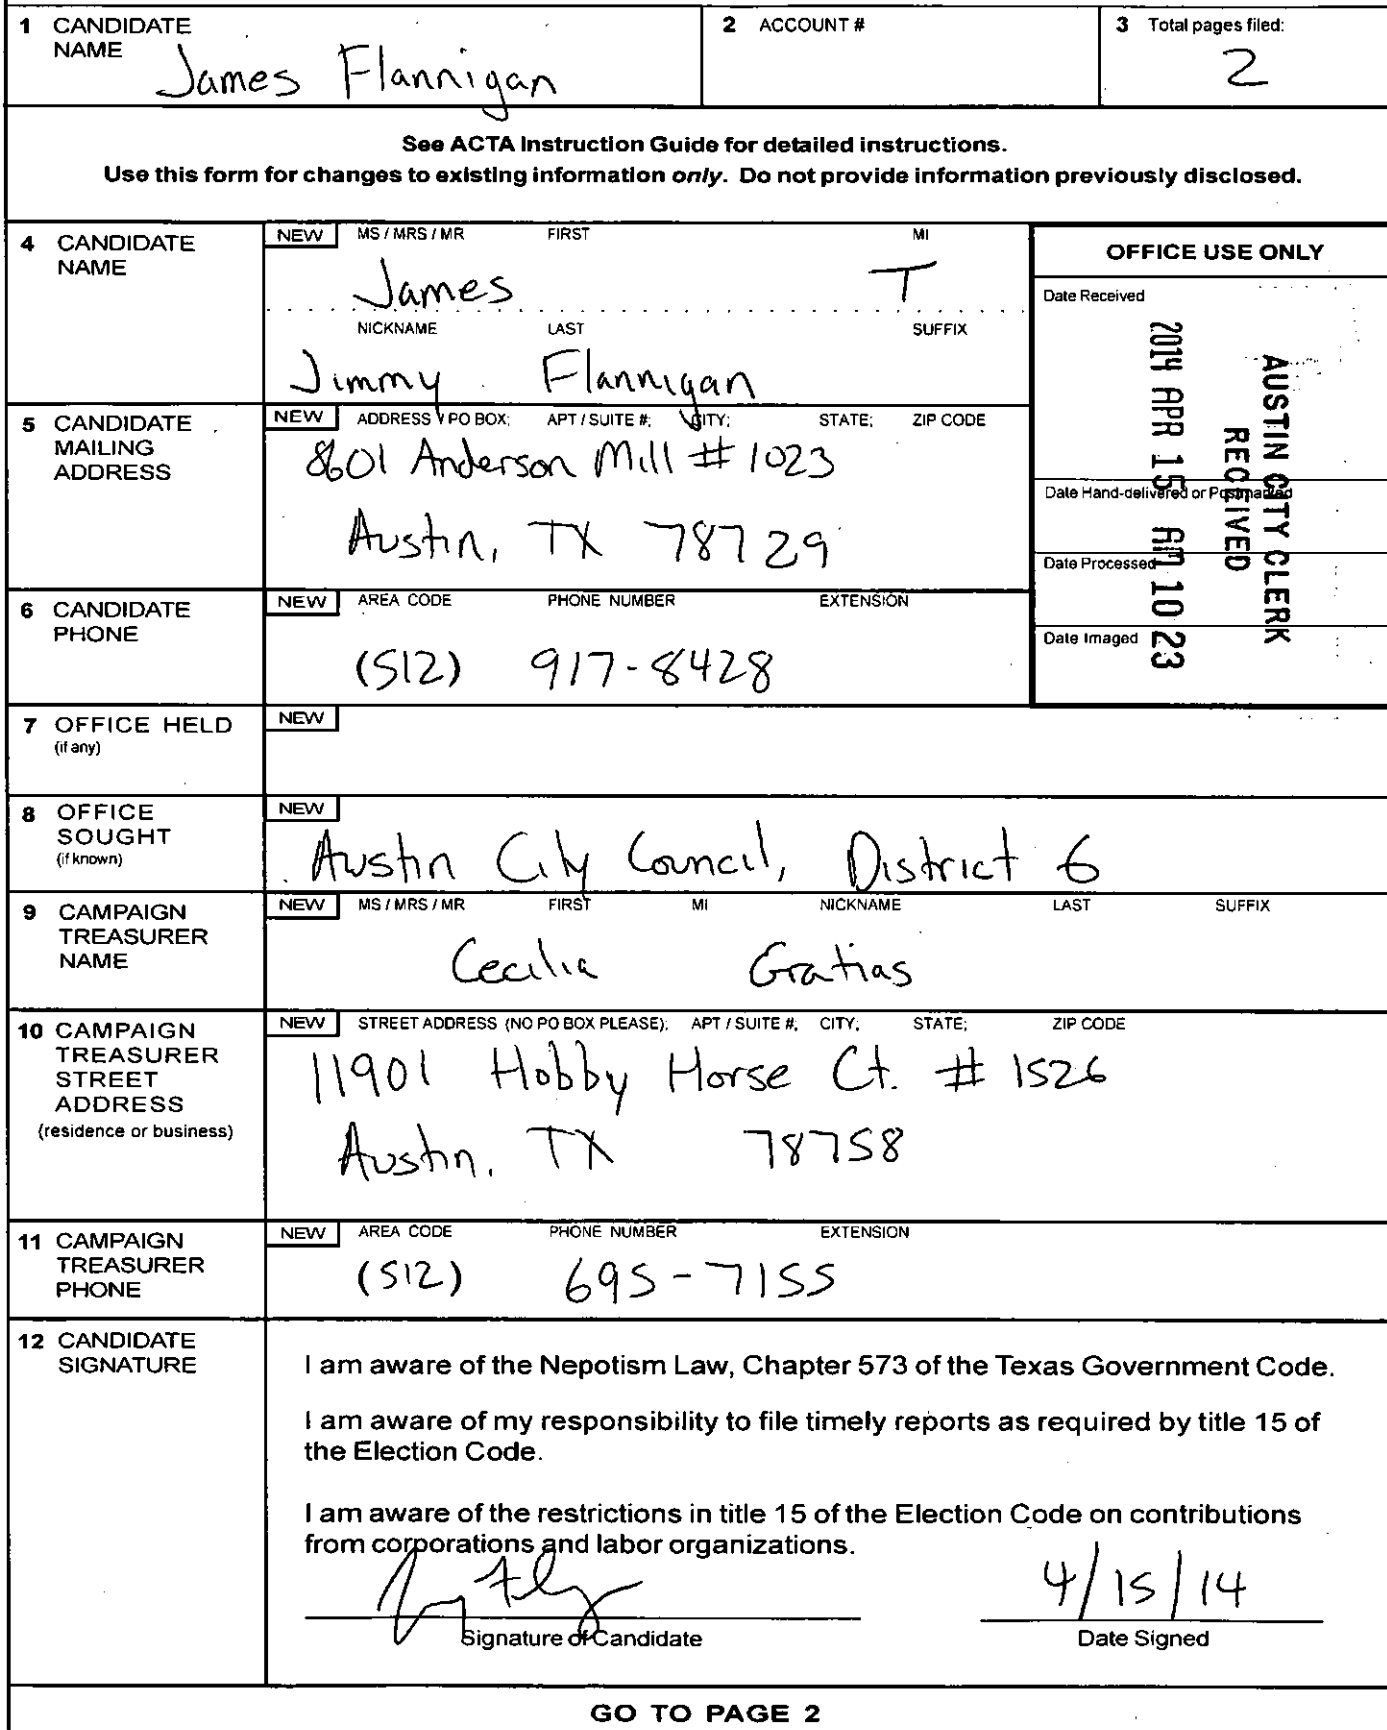 1 CANDIDATE NAME
James Flannigan
2 ACCOUNT #
3 Total pages filed:
2
See ACTA Instruction Guide for detailed instructions.
Use this form for changes to existing information only. Do not provide information previously disclosed.
4 CANDIDATE NAME
NEW MS / MRS / MR FIRST MI
James T
NICKNAME LAST SUFFIX
Jimmy Flannigan
OFFICE USE ONLY
Date Received
AUSTIN CITY CLERK
RECEIVED
2014 APR 15 AM 10 23
Date Hand-delivered or Postmarked
Date Processed
Date Imaged
5 CANDIDATE MAILING ADDRESS
NEW ADDRESS / PO BOX; APT / SUITE #; CITY; STATE; ZIP CODE
8601 Anderson Mill # 1023
Austin, TX 78729
6 CANDIDATE PHONE
NEW AREA CODE PHONE NUMBER EXTENSION
(512) 917-8428
7 OFFICE HELD
(if any)
NEW
8 OFFICE SOUGHT
(if known)
NEW
Austin City Council, District 6
9 CAMPAIGN TREASURER NAME
NEW MS / MRS / MR FIRST MI NICKNAME LAST SUFFIX
Cecilia Gratias
10 CAMPAIGN TREASURER STREET ADDRESS
(residence or business)
NEW STREET ADDRESS (NO PO BOX PLEASE); APT / SUITE #; CITY; STATE; ZIP CODE
11901 Hobby Horse Ct. # 1526
Austin, TX 78758
11 CAMPAIGN TREASURER PHONE
NEW AREA CODE PHONE NUMBER EXTENSION
(512) 695-7155
12 CANDIDATE SIGNATURE
I am aware of the Nepotism Law, Chapter 573 of the Texas Government Code.
I am aware of my responsibility to file timely reports as required by title 15 of
the Election Code.
I am aware of the restrictions in title 15 of the Election Code on contributions
from corporations and labor organizations.
4/15/14
Signature of Candidate
Date Signed
GO TO PAGE 2